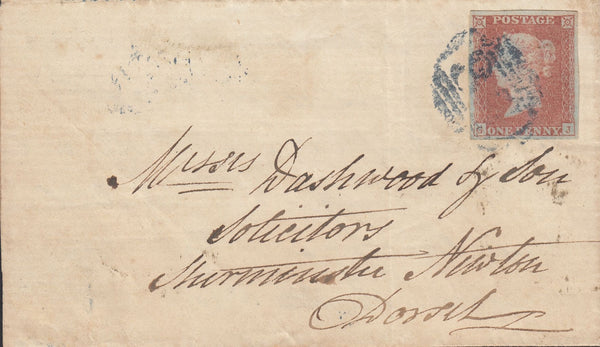 POSTAGE
ONE PENNY
Messrs Dashwood & Son
Solicitors
Sturminster Newton
Dorset